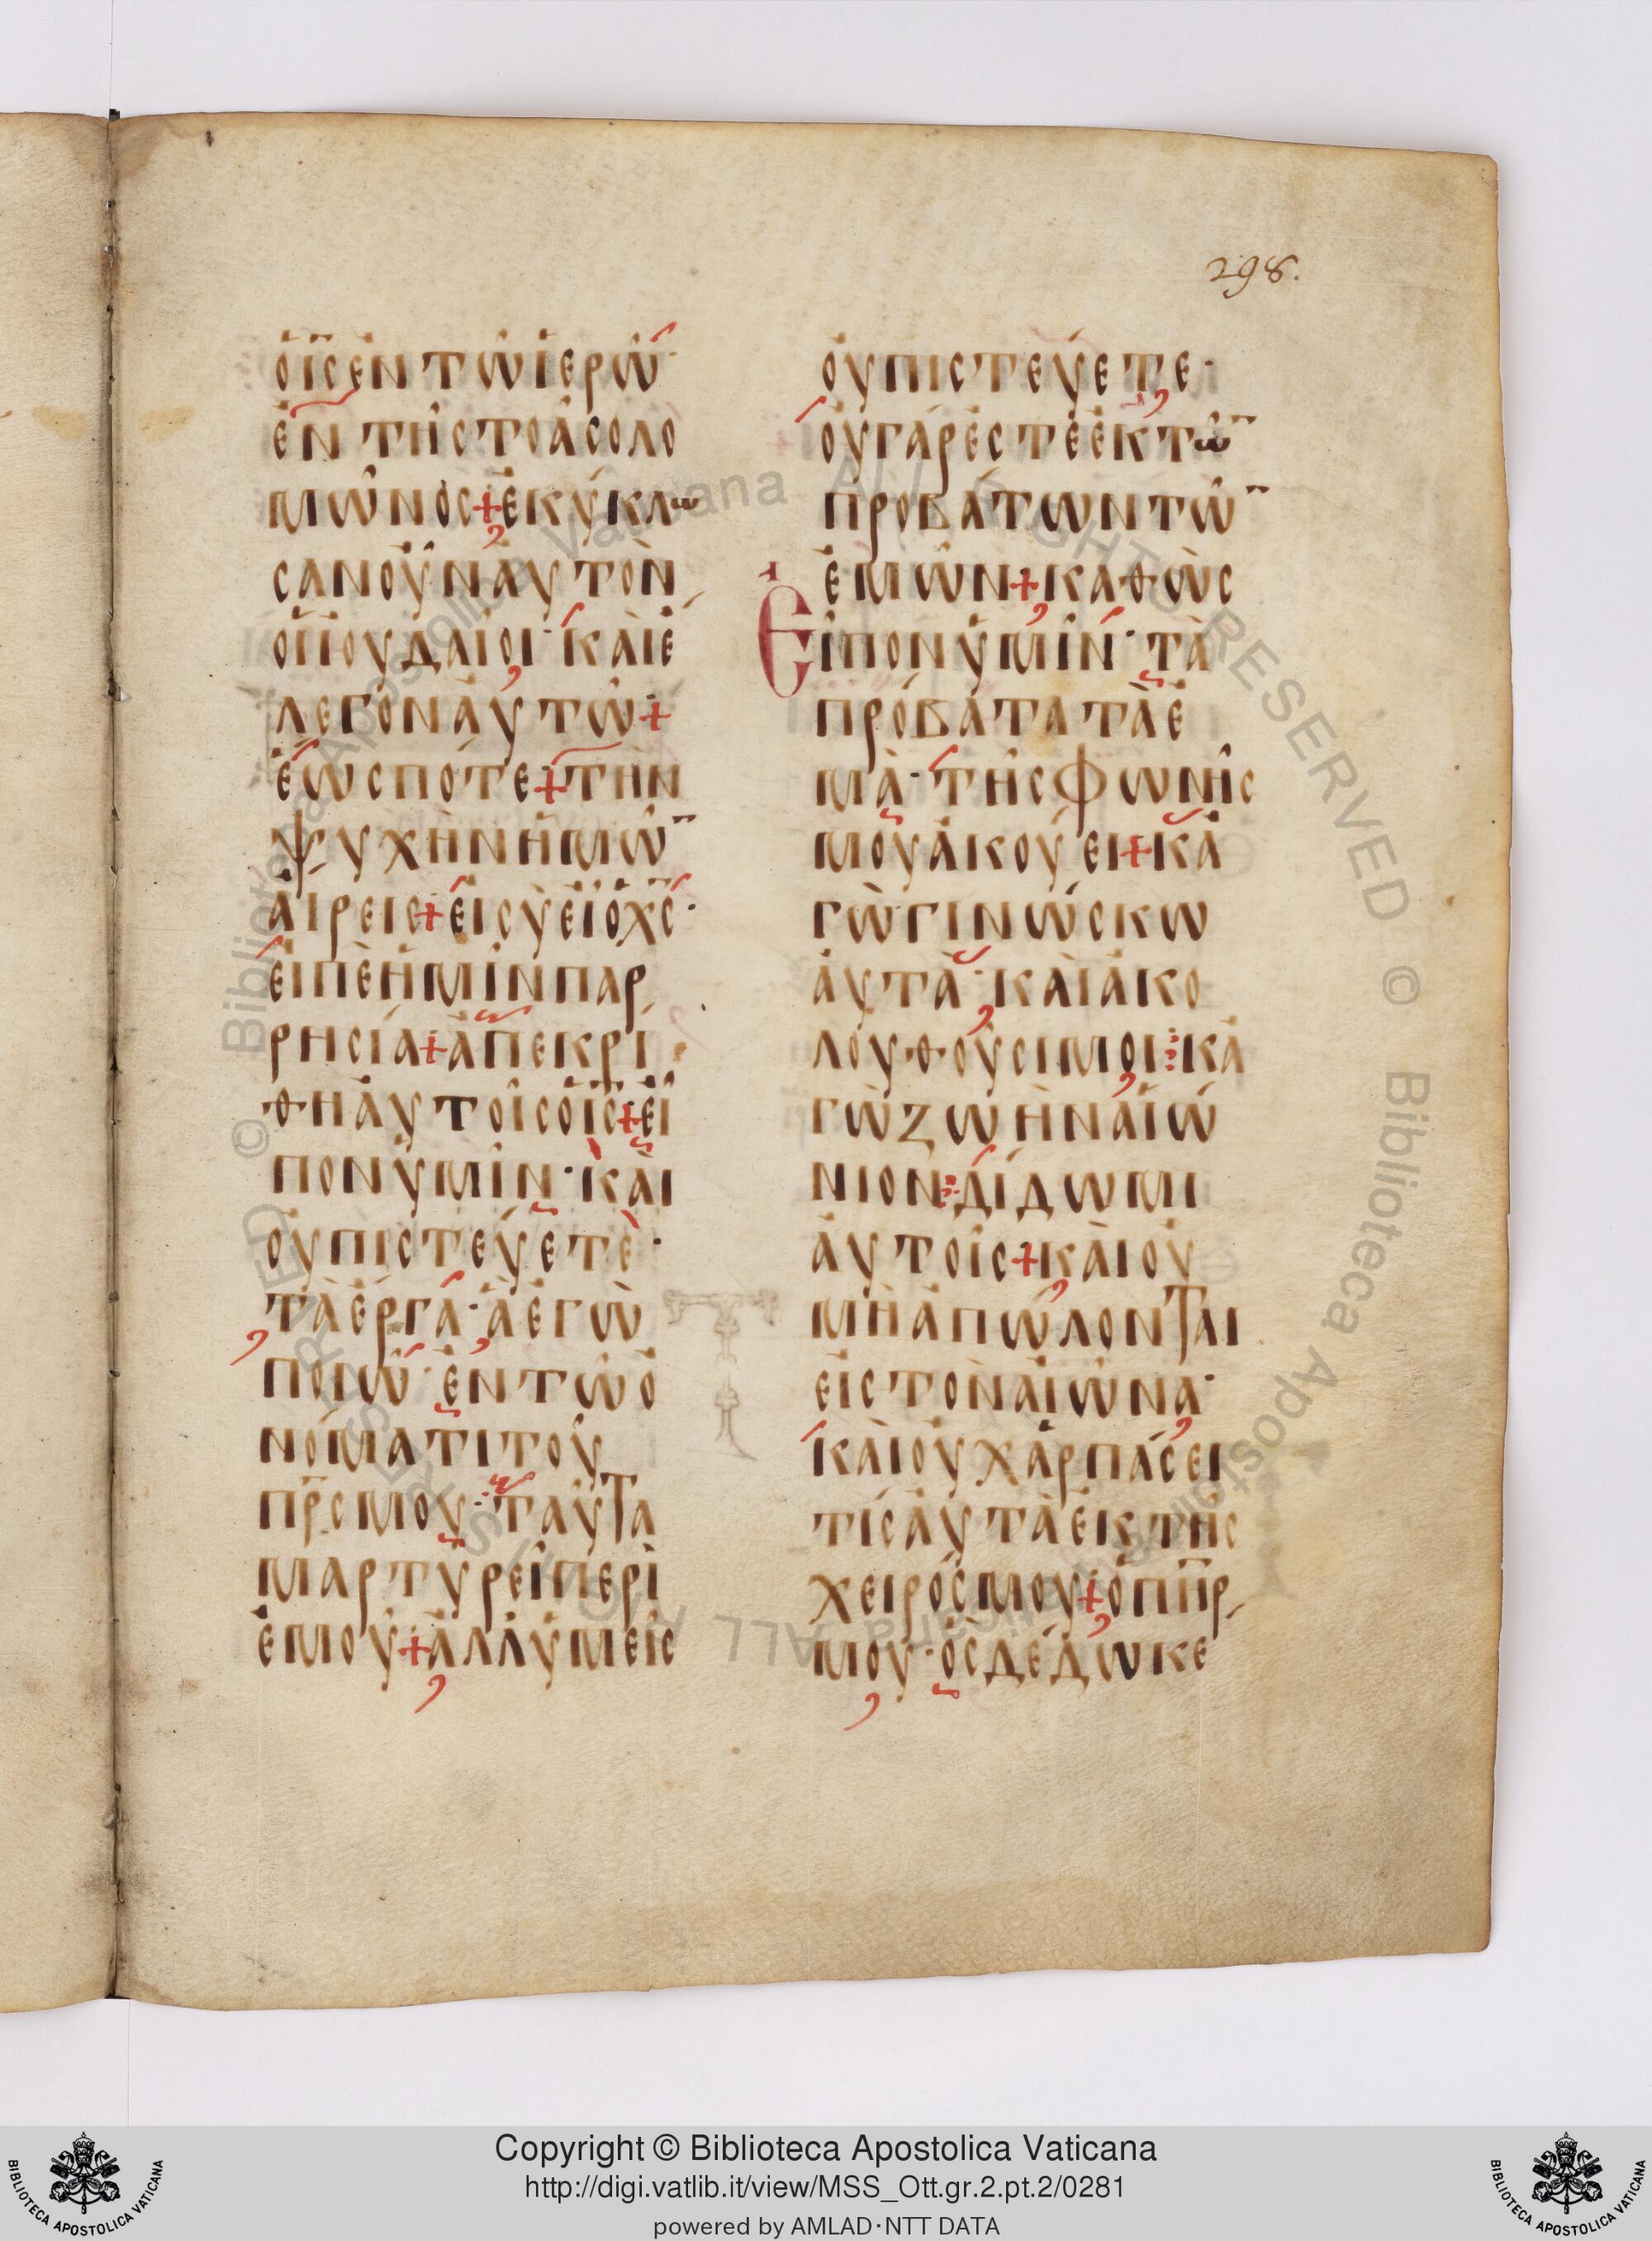 298.
ὁ ι̅ς̅ ἐν τῷ ἱερῷ·
ἐν τῇ στοᾷ σολο
μῶνος + ἐκύκλω
σαν οὖν αὐτὸν
οἱ ἰουδαῖοι· καὶ ἔ
λεγον αὐτῷ +
ἕως πότε + τὴν
ψυχὴν ἡμῶ̅
αἴρεις + εἰ σὺ εἶ ὁ χ̅ς̅·
εἰπὲ ἡμῖν παρ
ρησία + ἀπεκρί
θη αὐτοῖς ὁ ι̅ς̅ + εἶ
πον ὑμῖν· καὶ
οὐ πιστεύετε·
τὰ ἔργα· ἃ ἐγὼ
ποιῶ· ἐν τῷ ὀ
νόματι τοῦ
π̅ρ̅ς μου· ταῦτα
μαρτυρεῖ περὶ
ἐμοῦ + ἀλλ ὑμεῖς
οὐ πιστεύετε·
οὐ γάρ ἐστε ἐκ τῶ̅
προβάτων τῶ̅
ἐμῶν + καθὼς
Εἶπον ὑμῖν· τὰ
πρόβατα τὰ ἐ
μὰ· τῆς φωνῆς
μου ἀκούει + κἀ
γὼ γινώσκω
αὐτὰ· καὶ ἀκο
λουθοῦσι μοι ⁝ κἀ
γὼ ζωὴν αἰώ
νιον ⁝ δίδωμι
αὐτοῖς + καὶ οὐ
μὴ ἀπώλονται
εἰς τὸν αἰῶνα·
καὶ οὐχ ἁρπάσει
τίς αὐτὰ ἐκ τῆς
χειρός μου + ὁ π̅η̅ρ̅
μου· ὃς δέδωκε
© Biblioteca Apostolica Vaticana ALL RIGHTS RESERVED © Biblioteca Apostolica Vaticana ALL RIGHTS RESERVED
Copyright © Biblioteca Apostolica Vaticana
http://digi.vatlib.it/view/MSS_Ott.gr.2.pt.2/0281
powered by AMLAD·NTT DATA
BIBLIOTECA APOSTOLICA VATICANA
BIBLIOTECA APOSTOLICA VATICANA